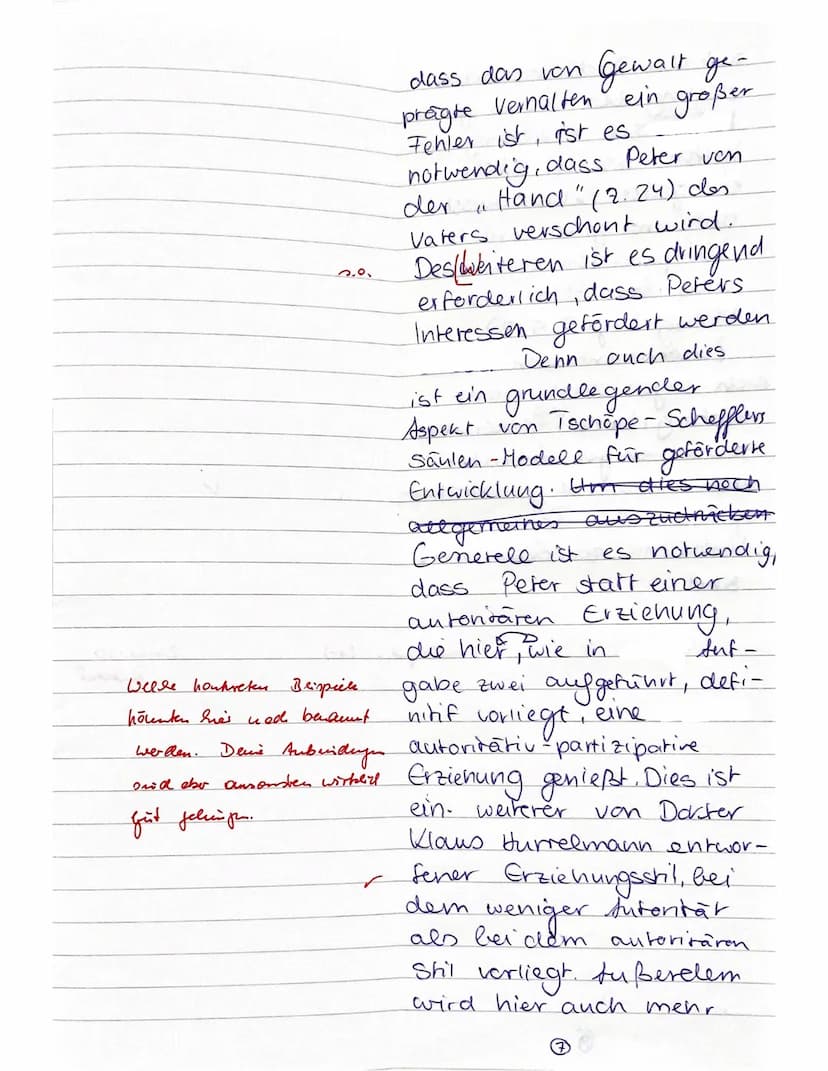 dass das von Gewalt ge-
prägte Verhalten ein großer
Fehler ist, ist es
notwendig, dass Peter von
der „Hand" (Z. 24) des
Vaters verschont wird.
s.o.
Des(w)eiteren ist es dringend
erforderlich, dass Peters
Interessen gefördert werden
Denn auch dies
ist ein grundlegender
Aspekt von Tschöpe-Schefflers
Säulen-Modell für geförderte
Entwicklung. Um dies noch
allgemeines auszudrücken
Generell ist es notwendig,
dass Peter statt einer
autoritären Erziehung,
die hier, wie in Auf-
gabe zwei aufgeführt, defi-
nitif vorliegt, eine
autoritativ-partizipative
Erziehung genießt. Dies ist
ein weiterer von Doktor
Klaus Hurrelmann entwor-
fener Erziehungsstil, bei
dem weniger Autorität
als bei dem autoritären
Stil vorliegt. Außerdem
wird hier auch mehr
Welche konkreten Beispiele
könnten hier noch benannt
werden. Deine Anbindungen
sind aber ansonsten wirklich
gut gelungen.
7